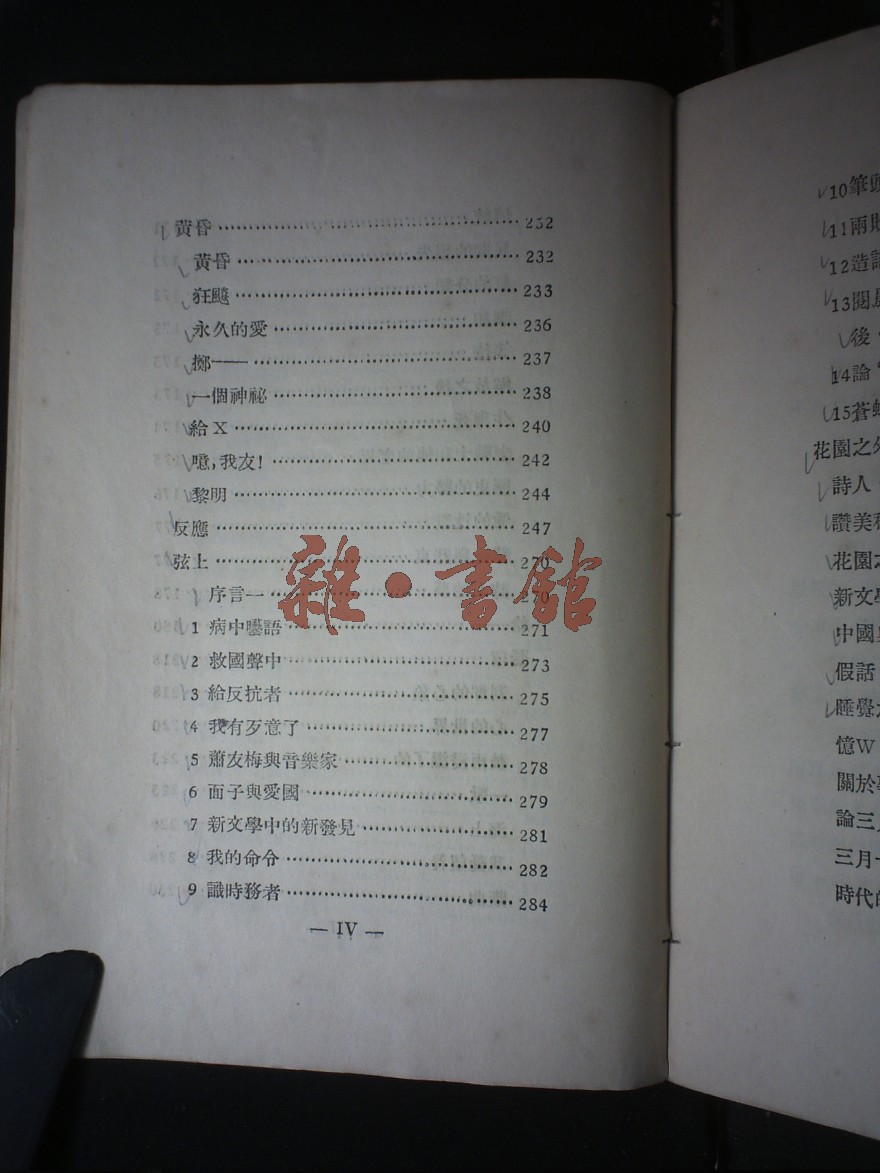 黃昏 232
黃昏 232
狂飈 233
永久的愛 236
擲—— 237
一個神祕 238
給X 240
噫,我友! 242
黎明 244
反應 247
弦上 270
序言一 270
1 病中囈語 271
2 救國聲中 273
3 給反抗者 275
4 我有歹意了 277
5 蕭友梅與音樂家 278
6 面子與愛國 279
7 新文學中的新發見 281
8 我的命令 282
9 識時務者 284
— IV —
雜·書館
10筆頭
11兩
12造
13閱
後
14論
15蒼
花園之外
詩人
讚美
花園之
新文學
中國
假話
睡覺
憶W
關於
論三
三月
時代的